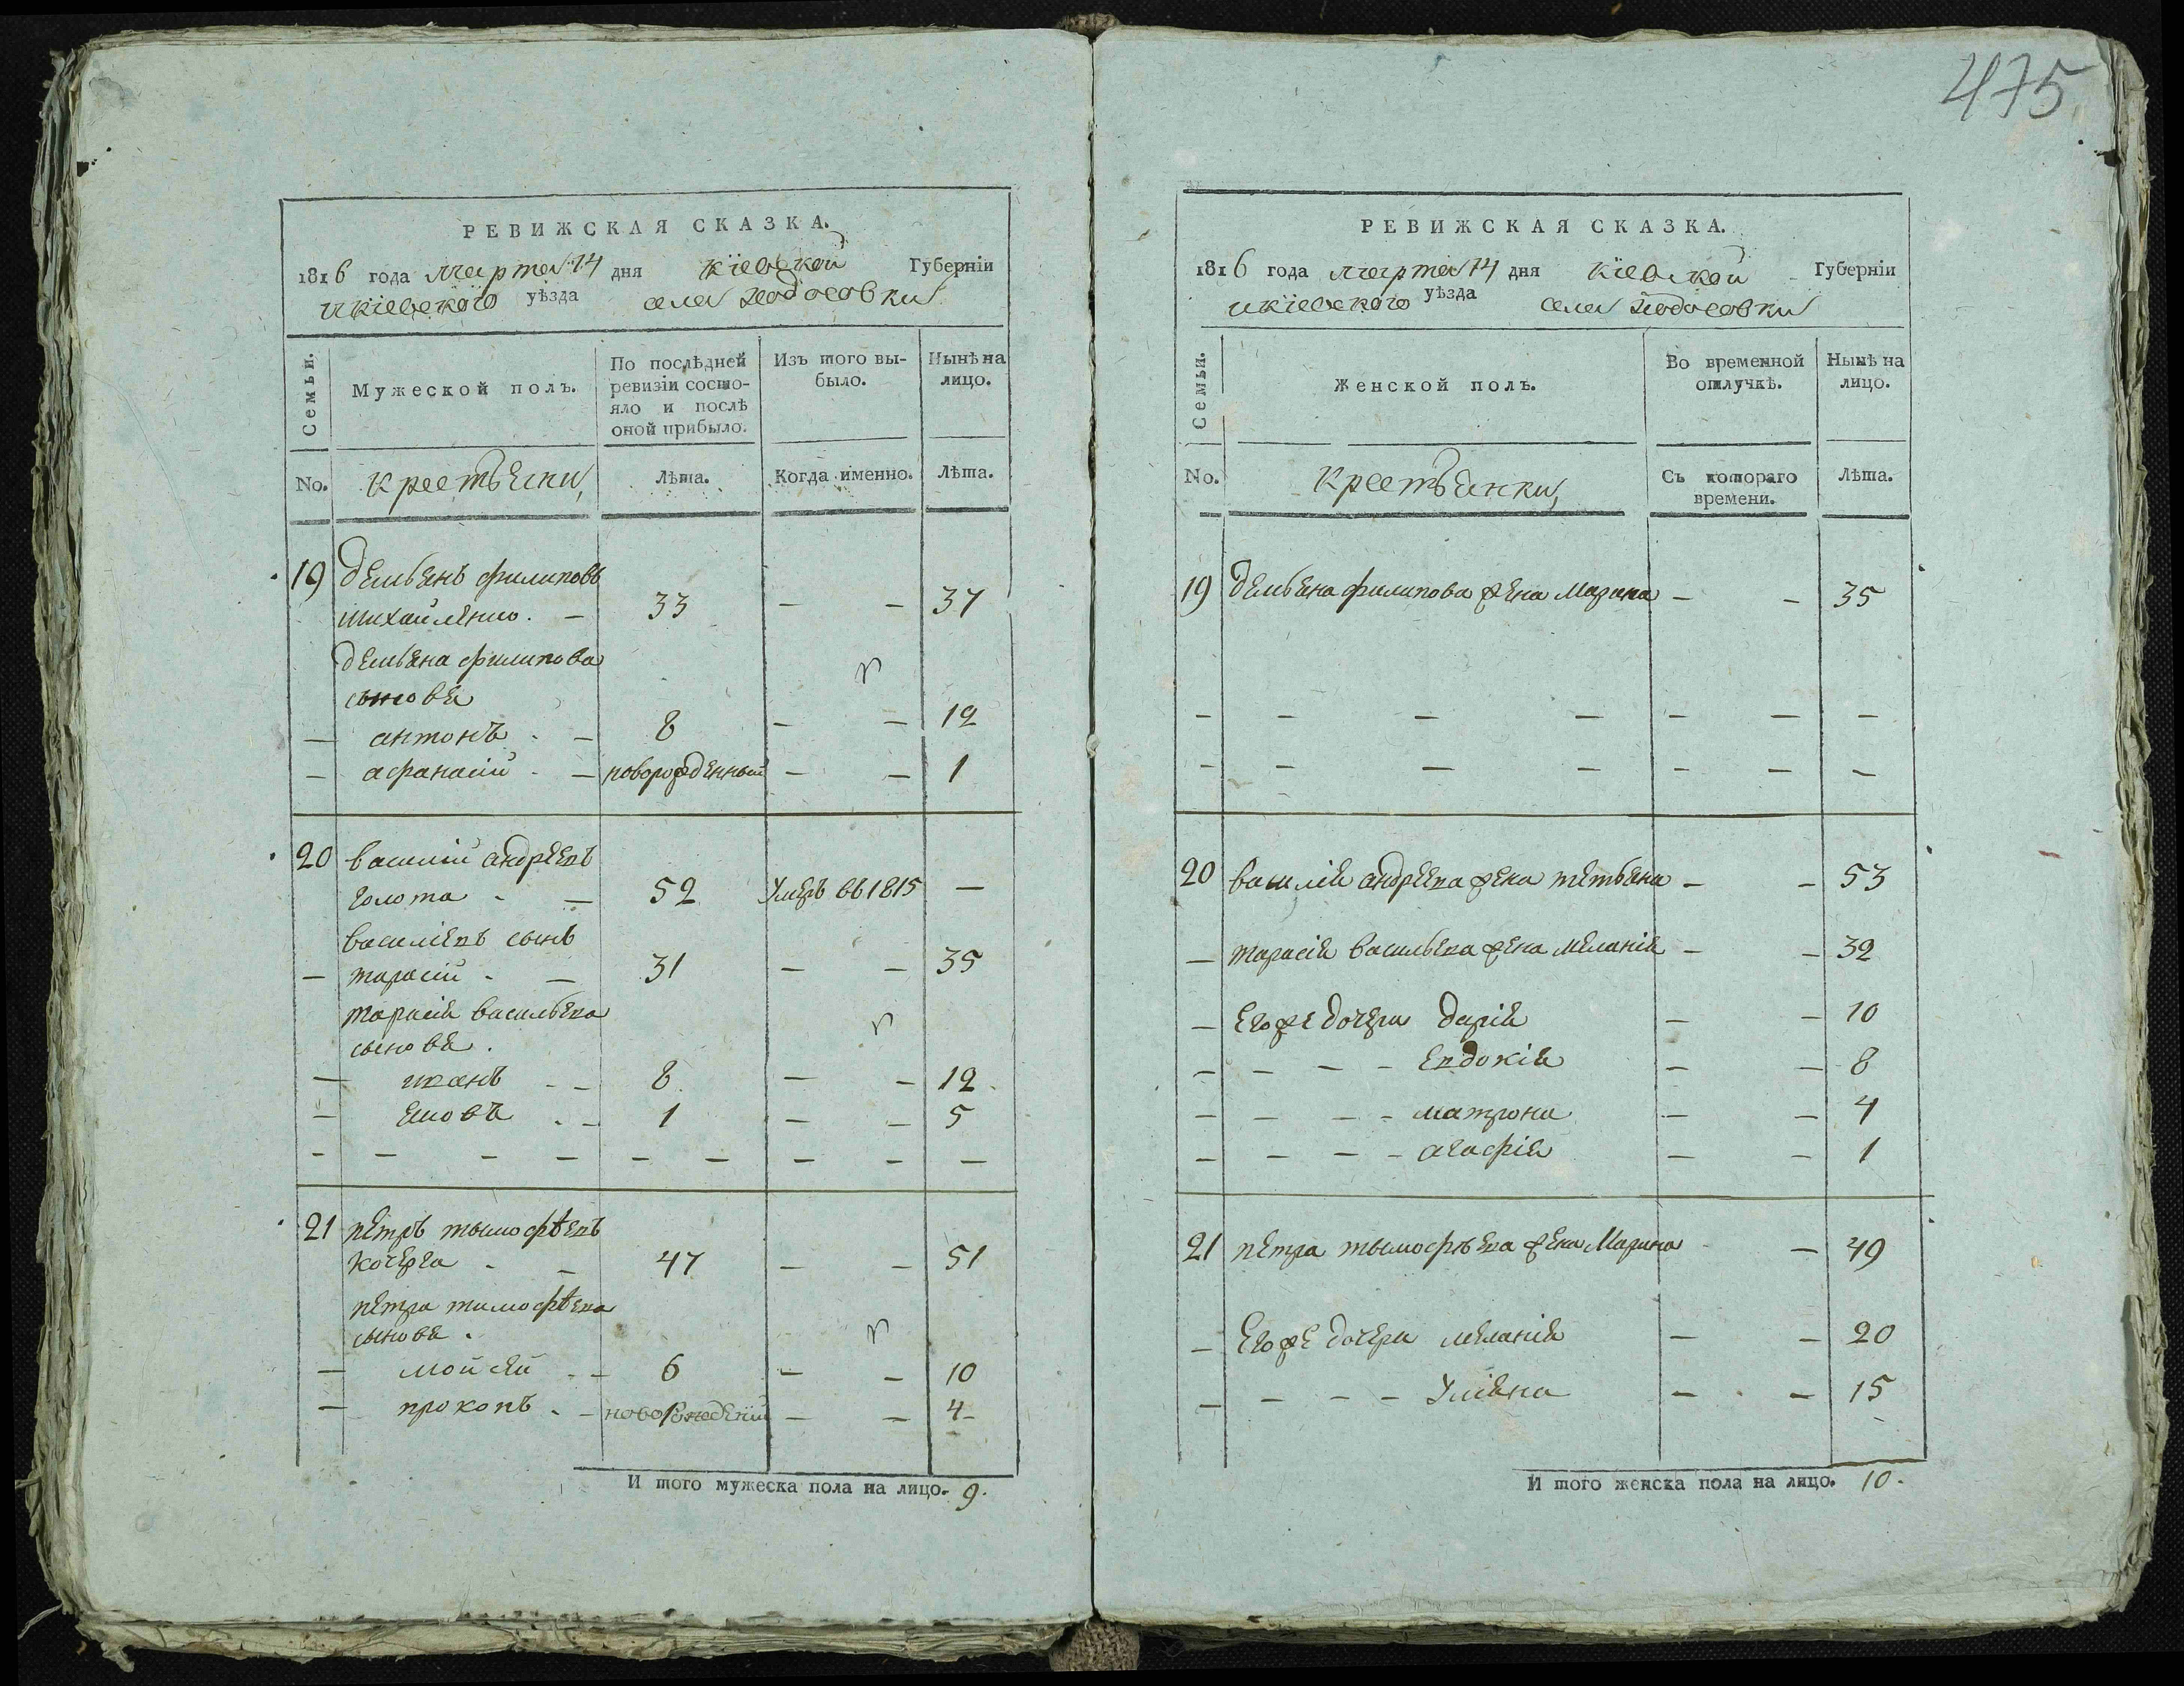 475
РЕВИЖСКАЯ СКАЗКА.
1816 года марта 14 дня Кіевской Губерніи
и кіевского уѣзда села Ходосовки
Семьи.
Мужеской полъ.
По послѣдней ревизіи состояло и послѣ оной прибыло.
Изъ того выбыло.
Нынѣ на лицо.
No.
крестьяни
Лѣта.
Когда именно.
Лѣта.
19 демьянъ филиповъ
михайленко. – 33 – – 37
демьяна филипова
сыновя
– антонъ . – 8 – – 12
– афанасій . – новорожденный – – 1
20 василій андреевъ
голота . – 52 Умеръ въ 1815 –
василіевъ сынъ
– тарасій . – 31 – – 35
тарасія васильева
сыновя .
– иванъ . – 8 – – 12
– яковъ . – 1 – – 5
– – – – – – – – –
21 петръ тымофѣевъ
кочерга . – 47 – – 51
петра тимофѣева
сыновя .
– мойсей . – 6 – – 10
– прокопъ . – новорожденій – – 4
И того мужеска пола на лицо. 9.
РЕВИЖСКАЯ СКАЗКА.
1816 года марта 14 дня Кіевской Губерніи
и кіевского уѣзда села Ходосовки
Семьи.
Женской полъ.
Во временной отлучкѣ.
Нынѣ на лицо.
No.
крестьянки
Съ котораго времени.
Лѣта.
19 демьяна филипова жена Марина – – 35
– – – – – – –
– – – – – – –
20 василія андреева жена тетьяна – – 53
– тарасія васильева жена меланія – – 32
– Егоже дочери дарія – – 10
– – – – Евдокія – – 8
– – – – матрона – – 4
– – – – агафія – – 1
21 петра тымофѣева жена Марина – 49
– Егоже дочери меланія – – 20
– – – – Уліяна – – 15
И того женска пола на лицо. 10.